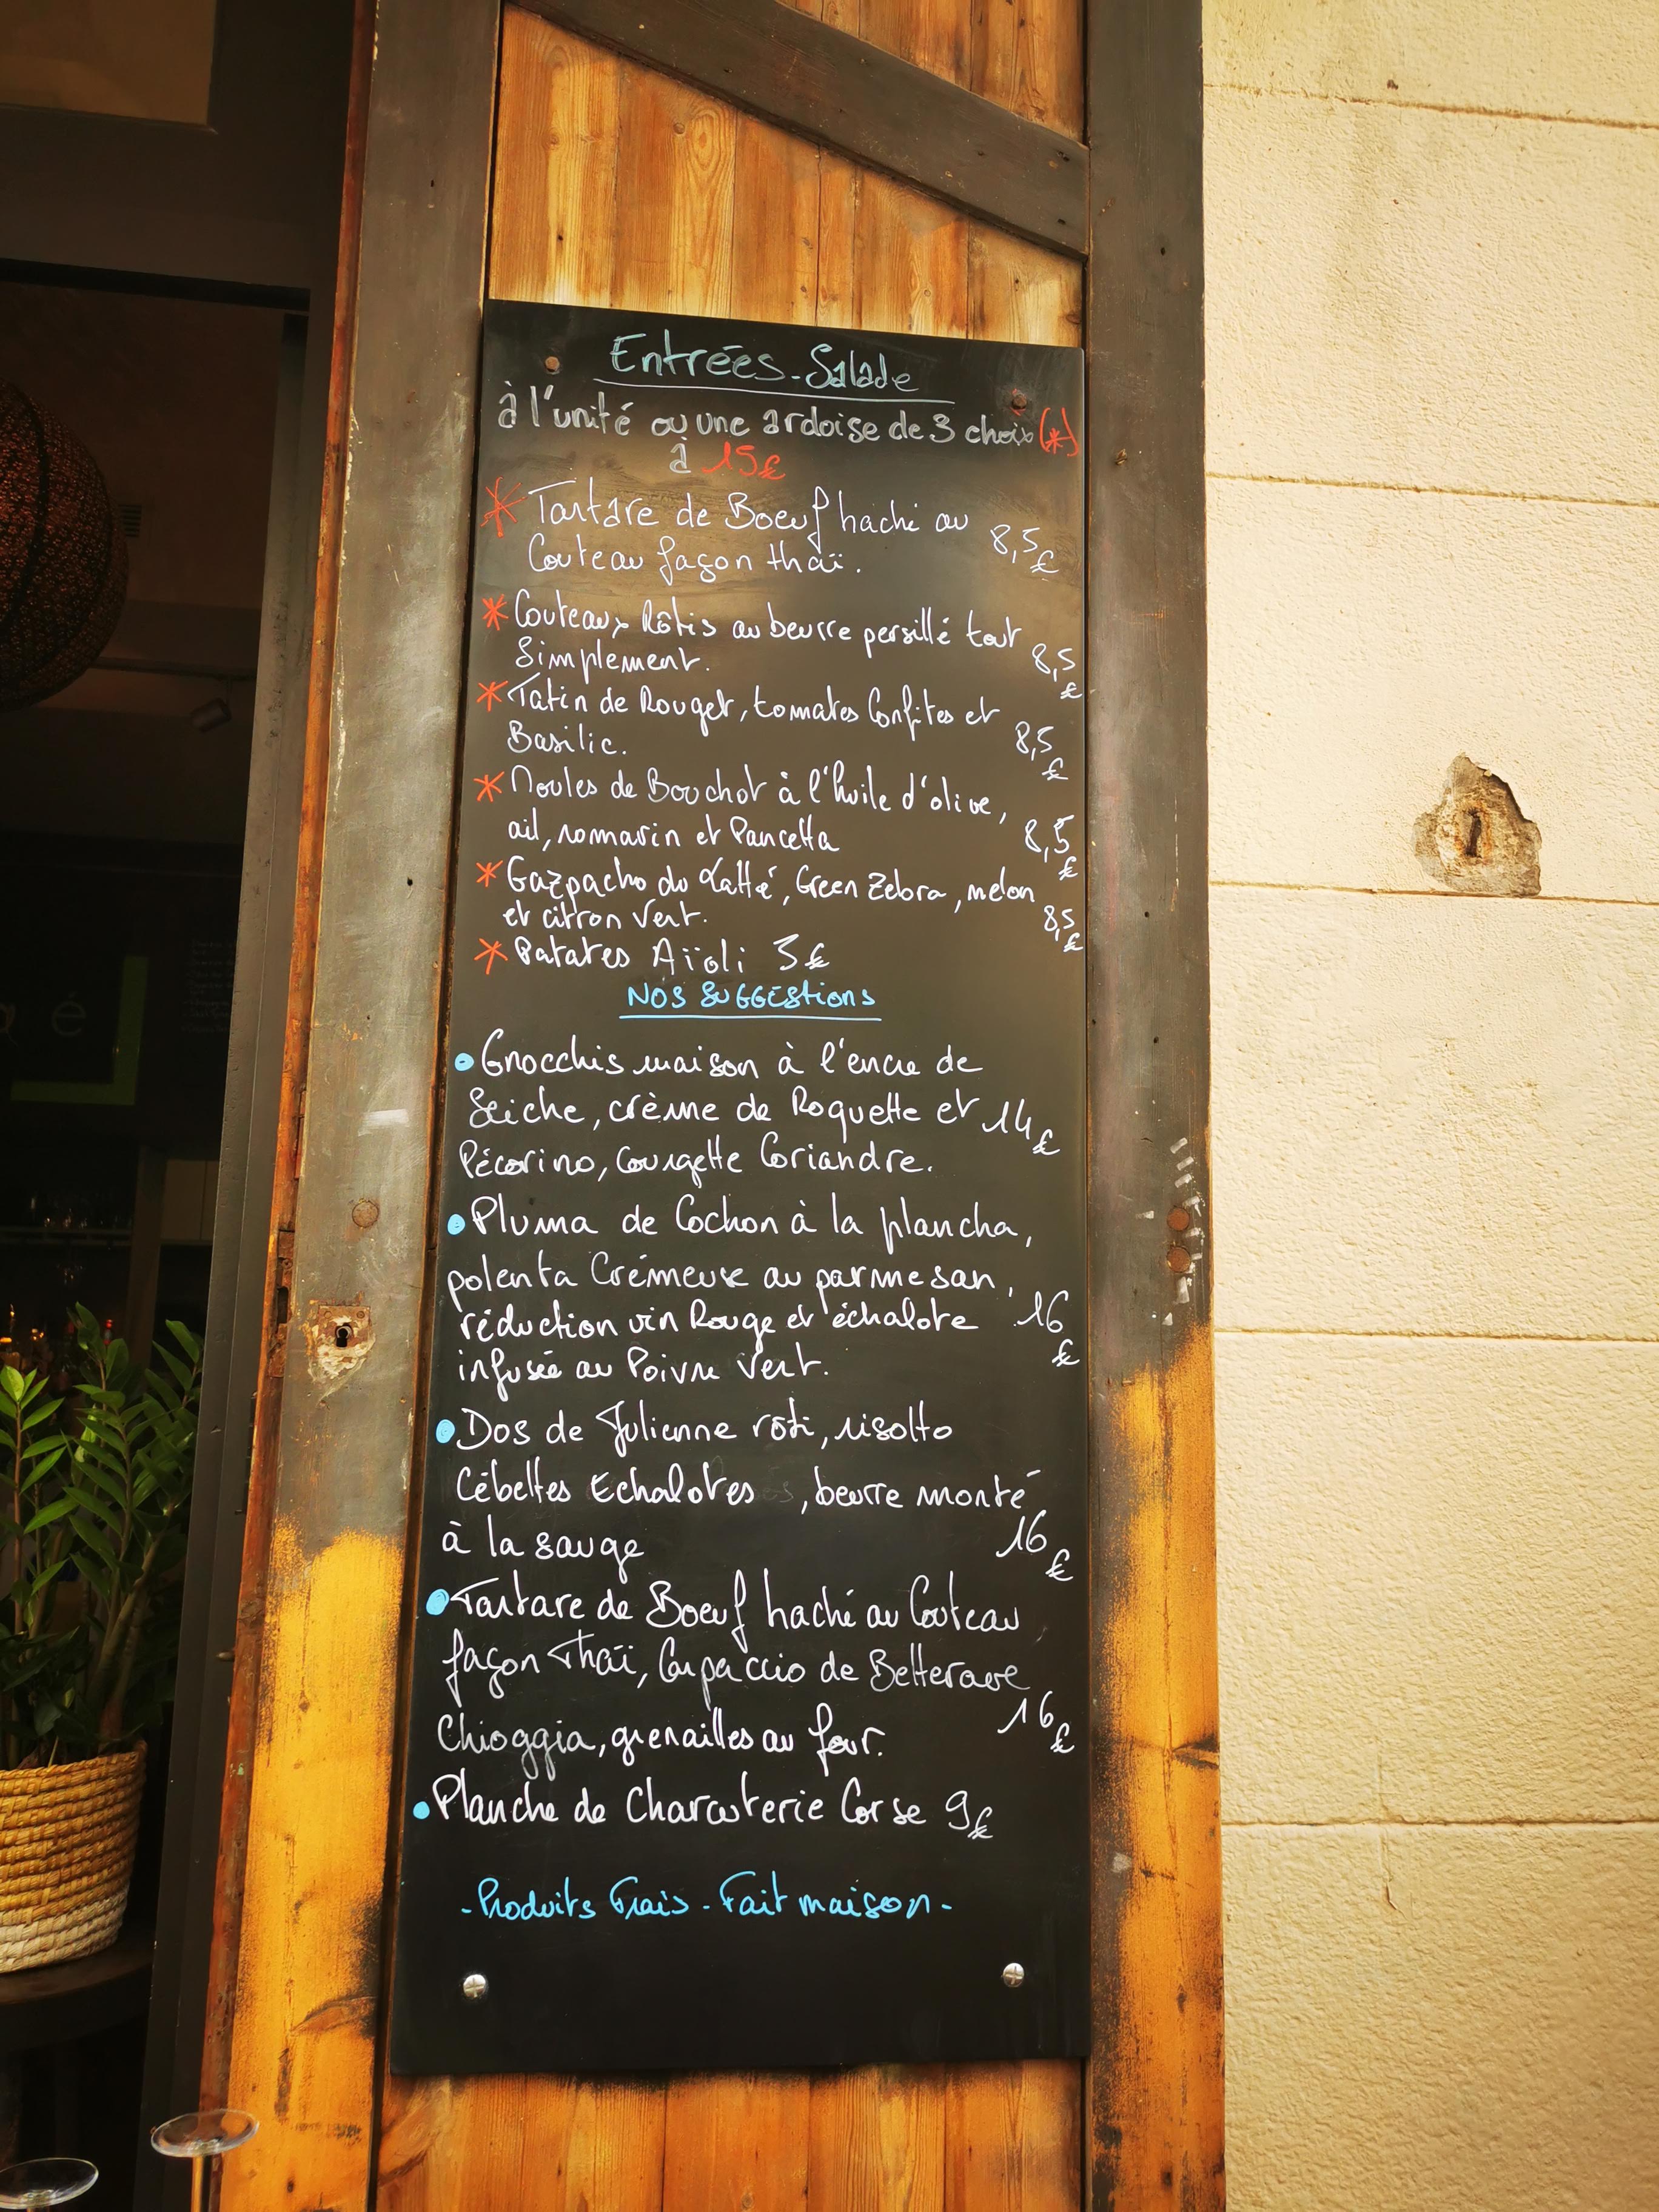 Entrées-Salade
à l'unité ou une ardoise de 3 choix (*)
à 15€
* Tartare de Boeuf haché au 8,5€
Couteau façon thaï.
* Couteaux Rôtis au beurre persillé tout
Simplement. 8,5€
* Tatin de Rouget, tomates Confites et
Basilic. 8,5€
* Moules de Bouchot à l'huile d'olive,
ail, romarin et Pancetta 8,5€
* Gazpacho du Latté, Green Zebra, melon
et citron vert. 8,5€
* Patates Aïoli 3€
NOS SUGGEStions
• Gnocchis maison à l'encre de
Seiche, crème de Roquette et 14€
Pécorino, Courgette Coriandre.
• Pluma de Cochon à la plancha,
polenta Crémeuse au parmesan,
réduction vin Rouge et échalote 16€
infusée au Poivre vert.
• Dos de Julienne rôti, risotto
Cébettes Echalotes, beurre monté
à la sauge 16€
• Tartare de Boeuf haché au Couteau
façon Thaï, Carpaccio de Betterave
Chioggia, grenailles au four. 16€
• Planche de Charcuterie Corse 9€
- Produits Frais - Fait maison -
é